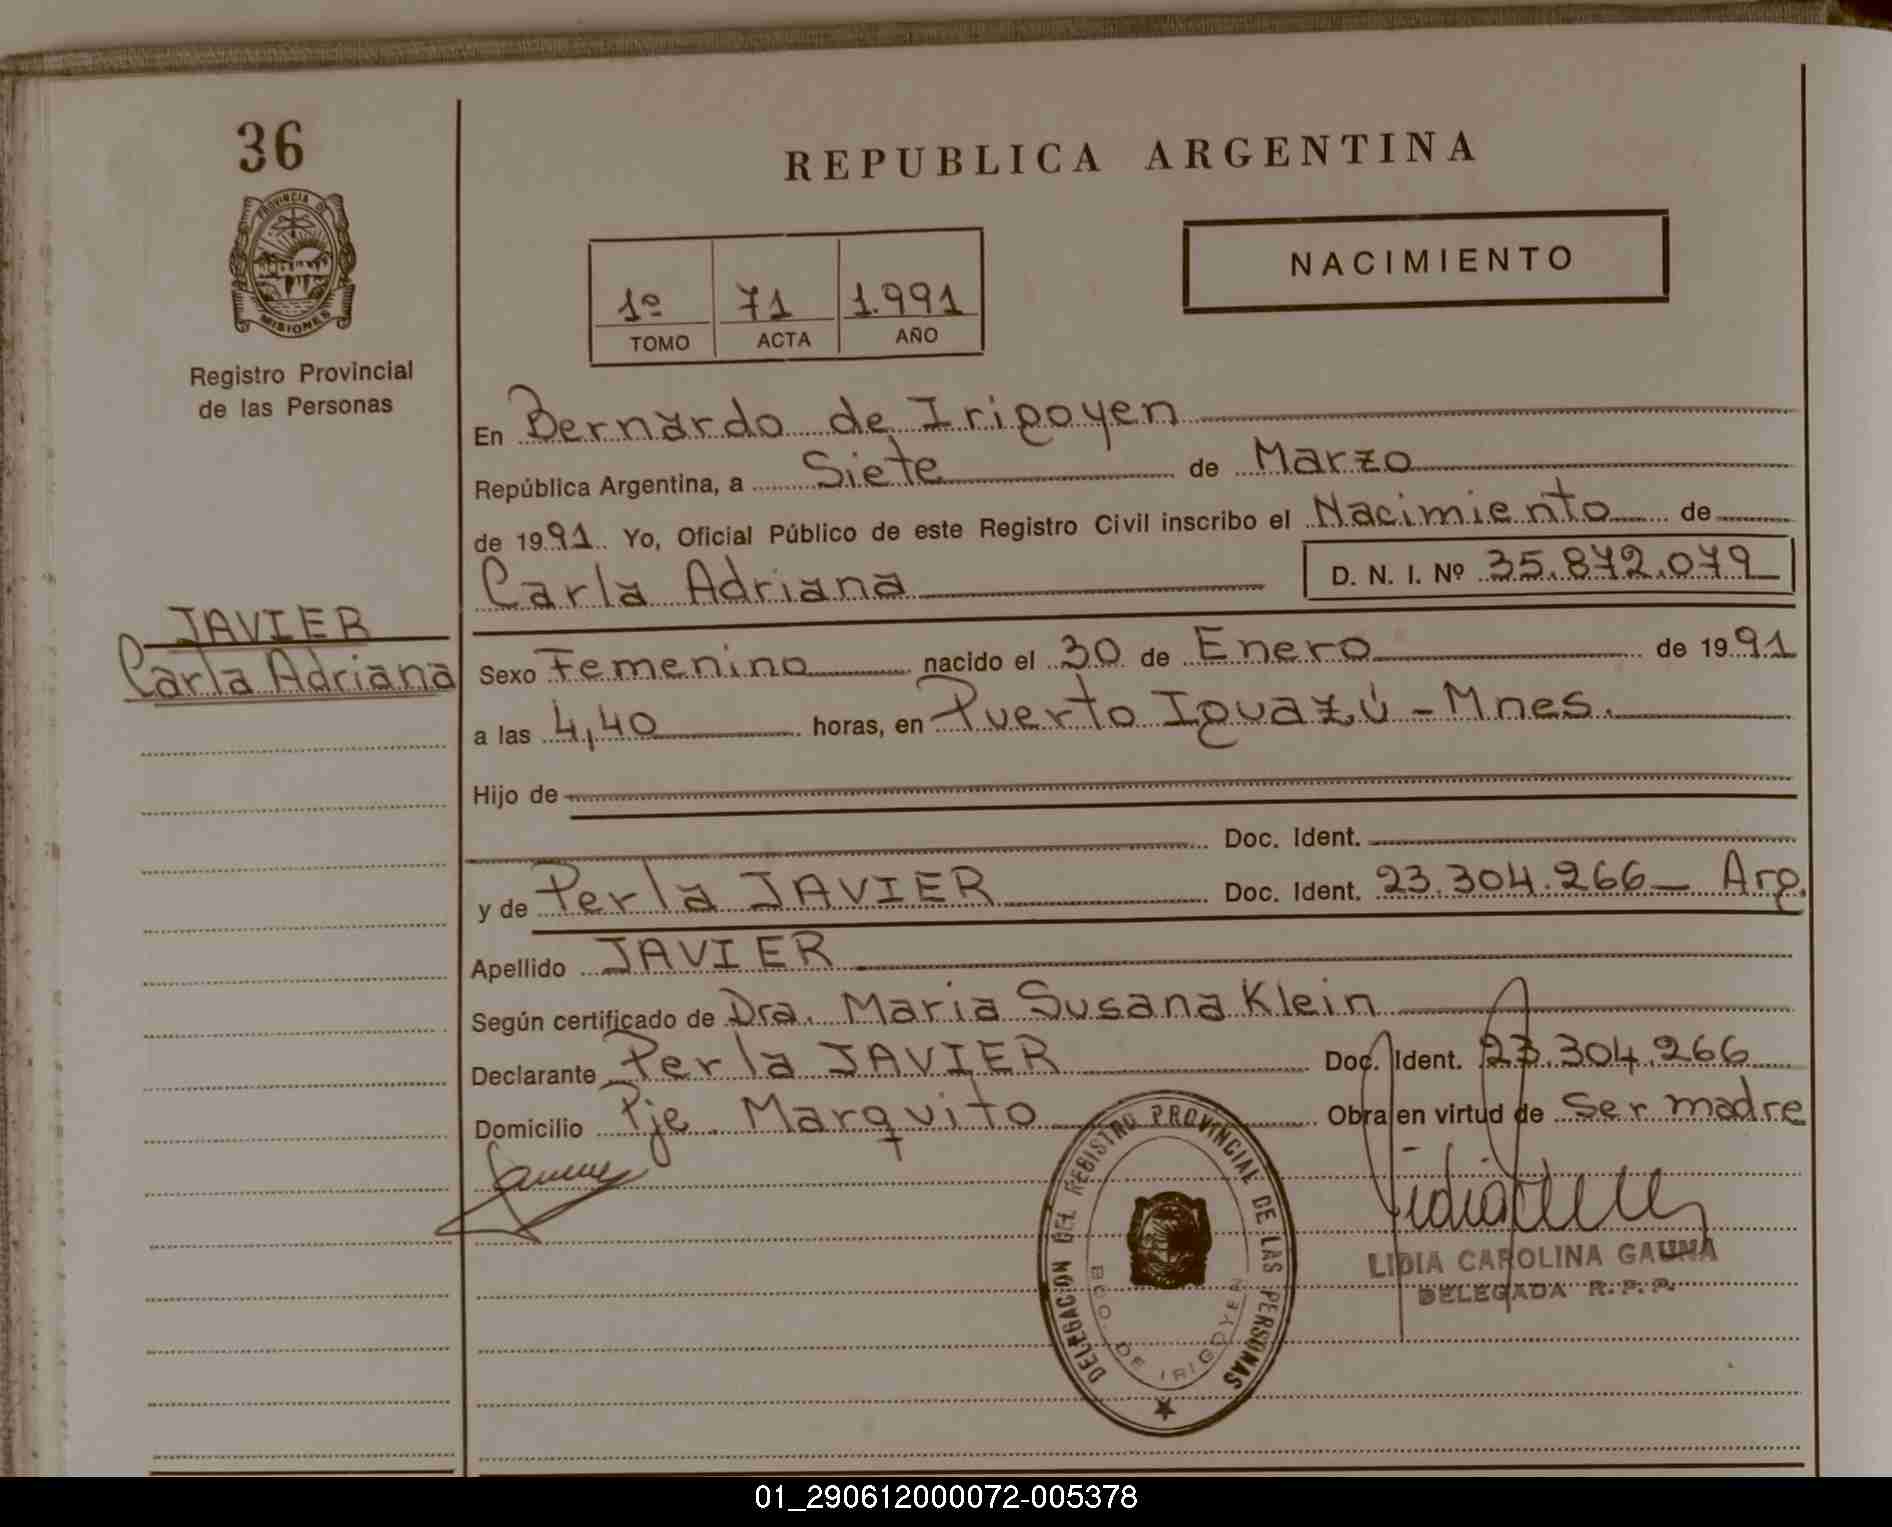 36
PROVINCIA DE
MISIONES
Registro Provincial
de las Personas
JAVIER
Carla Adriana
REPUBLICA ARGENTINA
1º 71 1.991
TOMO ACTA AÑO
NACIMIENTO
En Bernardo de Irigoyen
República Argentina, a Siete de Marzo
de 1991. Yo, Oficial Público de este Registro Civil inscribo el Nacimiento de
Carla Adriana D. N. I. Nº 35.872.079
Sexo Femenino nacido el 30 de Enero de 1991
a las 4,40 horas, en Puerto Iguazú - Mnes.
Hijo de
Doc. Ident.
y de Perla JAVIER Doc. Ident. 23.304.266 - Arg.
Apellido JAVIER
Según certificado de Dra. Maria Susana Klein
Declarante Perla JAVIER Doc. Ident. 23.304.266
Domicilio Pje. Marquito Obra en virtud de Ser madre
DELEGACION DEL REGISTRO PROVINCIAL DE LAS PERSONAS
BDO. DE IRIGOYEN
LIDIA CAROLINA GAUNA
DELEGADA R.P.P.
01_290612000072-005378